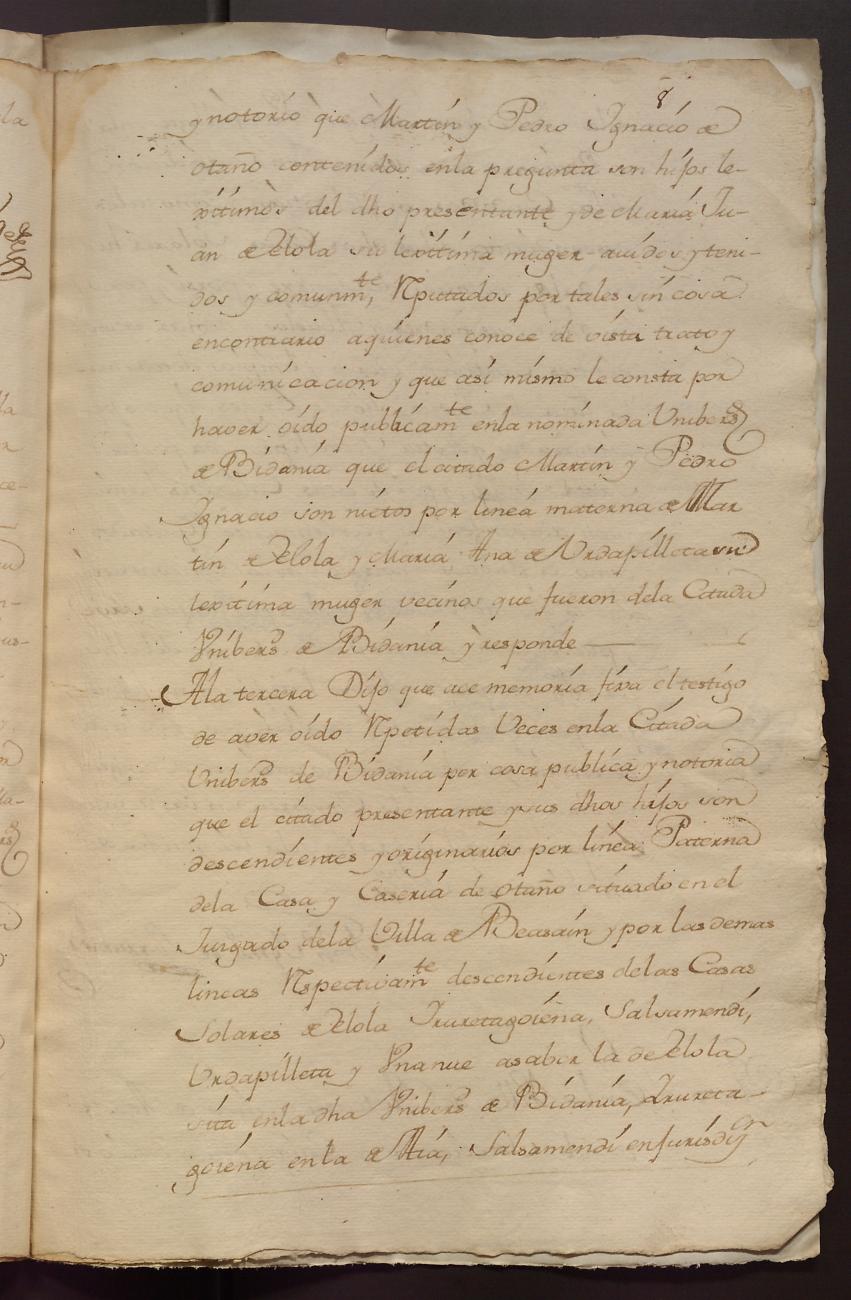 8
y notorio que Martin y Pedro Ignacio de
otaño contenidos enla pregunta son hijos le-
xitimos del dho presentante y de Maria Ju-
an de Elola su lexitima muger auidos y teni-
dos y comunmte, Rputados por tales sin cosa
encontrario a quienes conoce de vista trato y
comunicacion y que asi mismo le consta por
haver oido publicamte enla nominada Unibersd
de Bidania que el citado Martin y Pedro
Ignacio son nietos por linea materna de Mar
tin de Elola y Maria Ana de Urdapilleta su
lexitima muger vecinos que fueron dela Citada
Unibersd de Bidania y responde
Ala tercera Dijo que ace memoria fixa el testigo
de aver oido Rpetidas Veces enla Citada
Unibersd de Bidania por cosa publica y notoria
que el citado presentante y sus dhos hijos son
descendientes y originarios por linea Paterna
dela Casa y Caseria de otaño situado en el
Juzgado dela Villa de Beasain y por las demas
lineas Rspectivamte descendientes de las Casas
Solares de Elola Iruretagoiena, Salsamendi,
Urdapilleta y Unanue asaber la de Elola
sita enla dha Unibersd de Bidania, Irureta-
goiena en la de Atia, Salsamendi en jurisdin